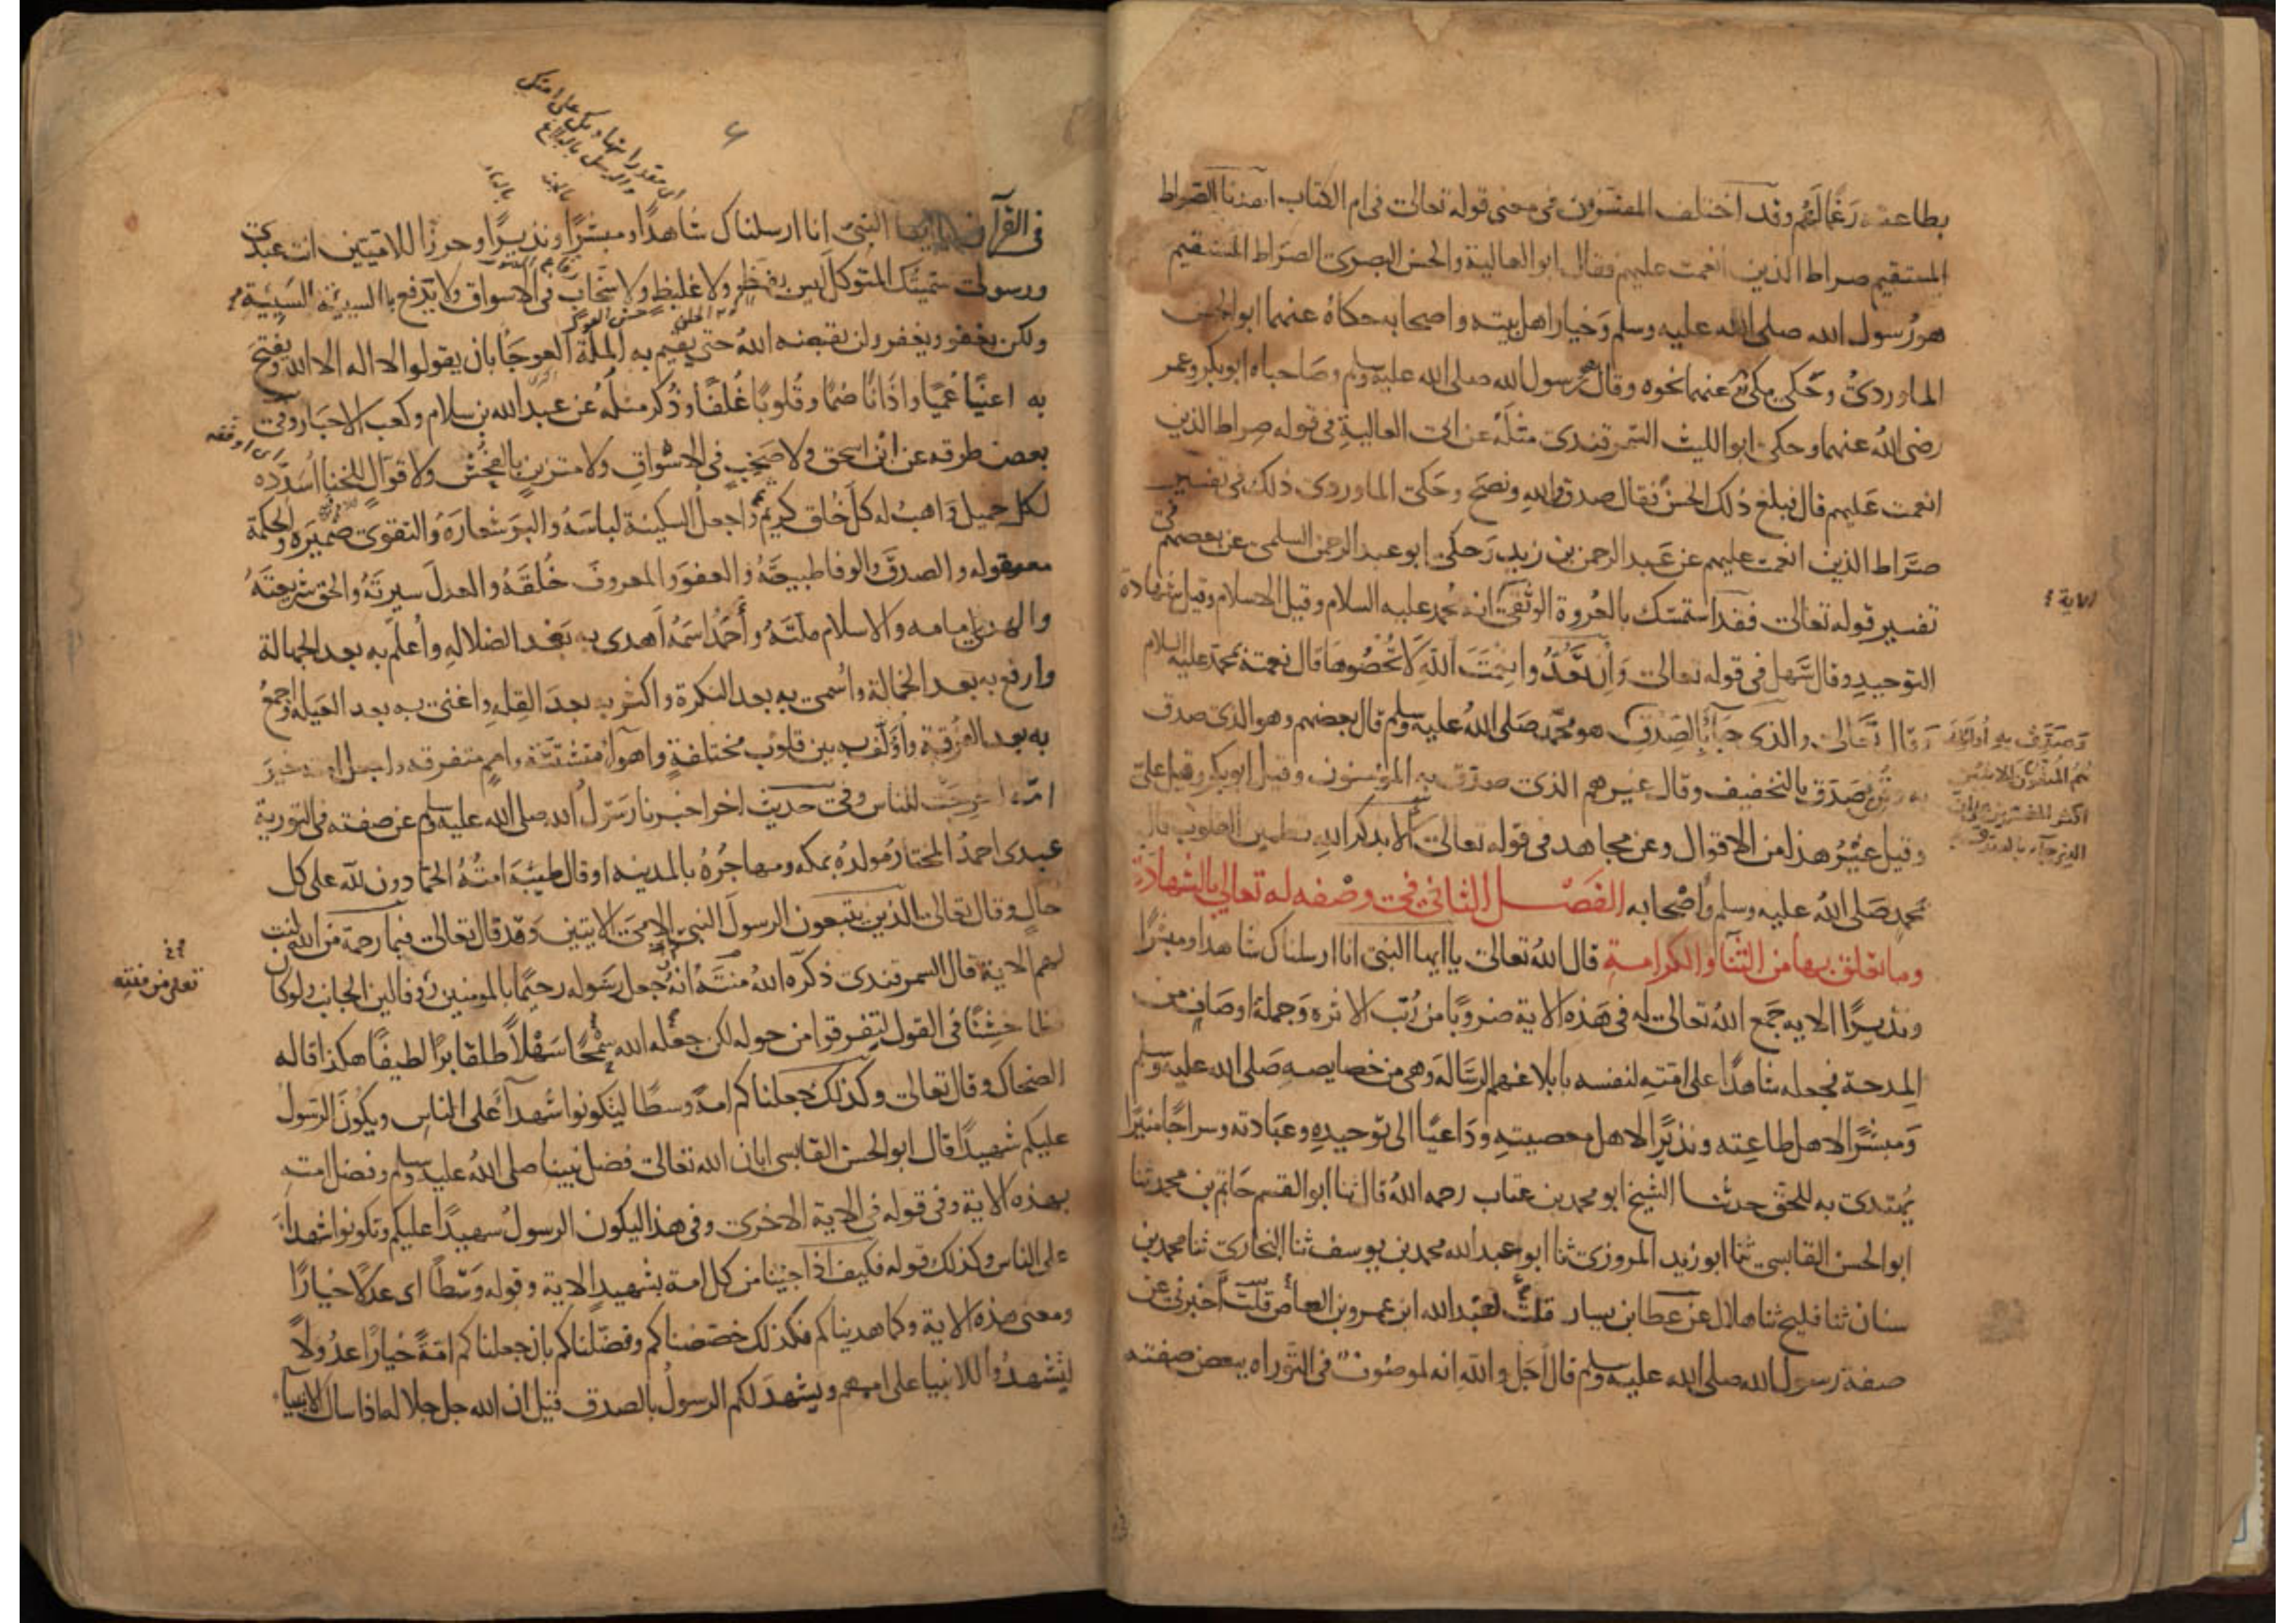 بطاعته رغما لهم وقد اختلف المفسرون فى معنى قوله تعالى فى ام الكتاب اهدنا الصراط
المستقيم صراط الذين انعمت عليهم فقال ابو العالية والحسن البصرى الصراط المستقيم
هو رسول الله صلى الله عليه وسلم وخيار اهل بيته واصحابه حكاه عنهما ابو الحسن
الماوردى وحكى مكى عنهما نحوه وقال هو رسول الله صلى الله عليه وسلم وصاحباه ابوبكر وعمر
رضى الله عنهما وحكى ابو الليث السمرقندى مثله عن ابى العالية فى قوله صراط الذين
انعمت عليهم قال فبلغ ذلك الحسن فقال صدق والله ونصح وحكى الماوردى ذلك فى تفسير
صراط الذين انعمت عليهم عن عبد الرحمن بن زيد وحكى ابو عبد الرحمن السلمى عن بعضهم فى
تفسير قوله تعالى فقد استمسك بالعروة الوثقى انه محمد عليه السلام وقيل الاسلام وقيل شهادة
التوحيد وقال سهل فى قوله تعالى وان تعدوا نعمت الله لا تحصوها قال نعمته بمحمد عليه السلام
وقال تعالى والذى جاء بالصدق هو محمد صلى الله عليه وسلم قال بعضهم وهو الذى صدق
به وقرئ صدق بالتخفيف وقال غيرهم الذى صدق به المؤمنون وقيل ابوبكر وقيل على
وقيل غير هذا من الاقوال وعن مجاهد فى قوله تعالى الا بذكر الله تطمين القلوب قال
محمد صلى الله عليه وسلم واصحابه الفصل الثانى فى وصفه له تعالى بالشهادة
وما تعلق بها من الثنا والكرامة قال الله تعالى يا ايها النبى انا ارسلناك شاهدا ومبشرا
ونذيرا الايه جمع الله تعالى له فى هذه الاية ضروبا من رتب الاثره وجملة اوصاف من
المدحة فجعله شاهدا على امته لنفسه بابلاغهم الرساله وهى من خصايصه صلى الله عليه وسلم
ومبشرا لاهل طاعته ونذيرا لاهل معصيته وداعيا الى توحيده وعبادته وسراجا منيرا
يهتدى به للحق حدثنا الشيخ ابو محمد بن عتاب رحمه الله قال ثنا ابو القسم حاتم بن محمد ثنا
ابو الحسن القابسى ثنا ابو زيد المروزى ثنا ابو عبد الله محمد بن يوسف ثنا البخارى ثنا محمد بن
سنان ثنا فليح ثنا هلال عن عطا بن يسار قلت لعبد الله ابن عمرو بن العاص قلت اخبرنى عن
صفة رسول الله صلى الله عليه وسلم قال اجل والله انه لموصوف فى التوراه ببعض صفته
الاية
وصدق به اولئك
هم المتقون الايتين
اكثر المفسرين على ان
الذى جاء بالصدق
٦
والرسل بالبلاغ
فى القرآن يا ايها النبى انا ارسلناك شاهدا ومبشرا ونذيرا وحرزا للاميين انت عبدى
ورسولى سميتك المتوكل ليس بفظ ولا غليظ ولا سخاب فى الاسواق ولا يدفع بالسيئة السيئة
ولكن يعفو ويغفر ولن يقبضه الله حتى يقيم به الملة العوجا بان يقولوا لا اله الا الله ويفتح
به اعينا عميا واذانا صما وقلوبا غلفا وذكر مثله عن عبد الله بن سلام وكعب الاحبار وفى
بعض طرقه عن ابن اسحق ولا صخب فى الاسواق ولا متزين بالفحش ولا قوال للخنا اسدده
اى اوفقه
لكل جميل واهب له كل خلق كريم واجعل السكينة لباسه والبر شعاره والتقوى ضميره والحكمة
معقوله والصدق والوفا طبيعته والعفو والمعروف خلقه والعدل سيرته والحق شريعته
والهدى امامه والاسلام ملته واحمد اسمه اهدى به بعد الضلاله واعلم به بعد الجهالة
وارفع به بعد الخمالة واسمى به بعد النكرة واكثر به بعد القله واغنى به بعد العيله واجمع
به بعد الفرقة واؤلف به بين قلوب مختلفة واهوا متشتتة وامم متفرقه واجعل امته خير
امة اخرجت للناس وفى حديث اخر اخبرنا رسول الله صلى الله عليه وسلم عن صفته فى التورية
عبدى احمد المختار مولده بمكه ومهاجره بالمدينه او قال طيبة امته الحمادون لله على كل
حال وقال تعالى الذين يتبعون الرسول النبى الامى الايتين وقد قال تعالى فبما رحمة من الله لنت
لهم الاية قال السمرقندى ذكره الله منته انه جعل رسوله رحيما بالمومنين روفا لين الجانب ولو كان
فظا خشنا فى القول لتفرقوا من حوله لكن جعله الله سمحا سهلا طلقا برا لطيفا هكذا قاله
الضحاك وقال تعالى وكذلك جعلناكم امة وسطا ليتكونوا شهدآ على الناس ويكون الرسول
عليكم شهيدا قال ابو الحسن القابسى ابان الله تعالى فضل نبينا صلى الله عليه وسلم وفضل امته
بهذه الاية وفى قوله فى الاية الاخرى وفى هذا ليكون الرسول شهيدا عليكم وتكونوا شهدآ
على الناس وكذلك قوله فكيف اذا جينا من كل امة بشهيد الاية وقوله وسطا اى عدلا خيارا
ومعنى هذه الاية وكما هديناكم فكذلك خصصناكم وفضلناكم بان جعلناكم امة خيارا عدولا
لتشهدوا للانبيا على اممهم ويشهد لكم الرسول بالصدق قيل ان الله جل جلاله اذا سال الانبيآ
تعالى من منته